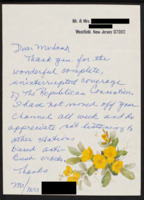 Mr. & Mrs.
Westfield, New Jersey 07090
Dear
Thank you for the
wonderful complete,
uninterrupted coverage
of The Republican Convention.
I have not moved off your
channel all week and do
appreciate not listening to
other stations
based anti-
Bush
Thanks
Mr/Mrs